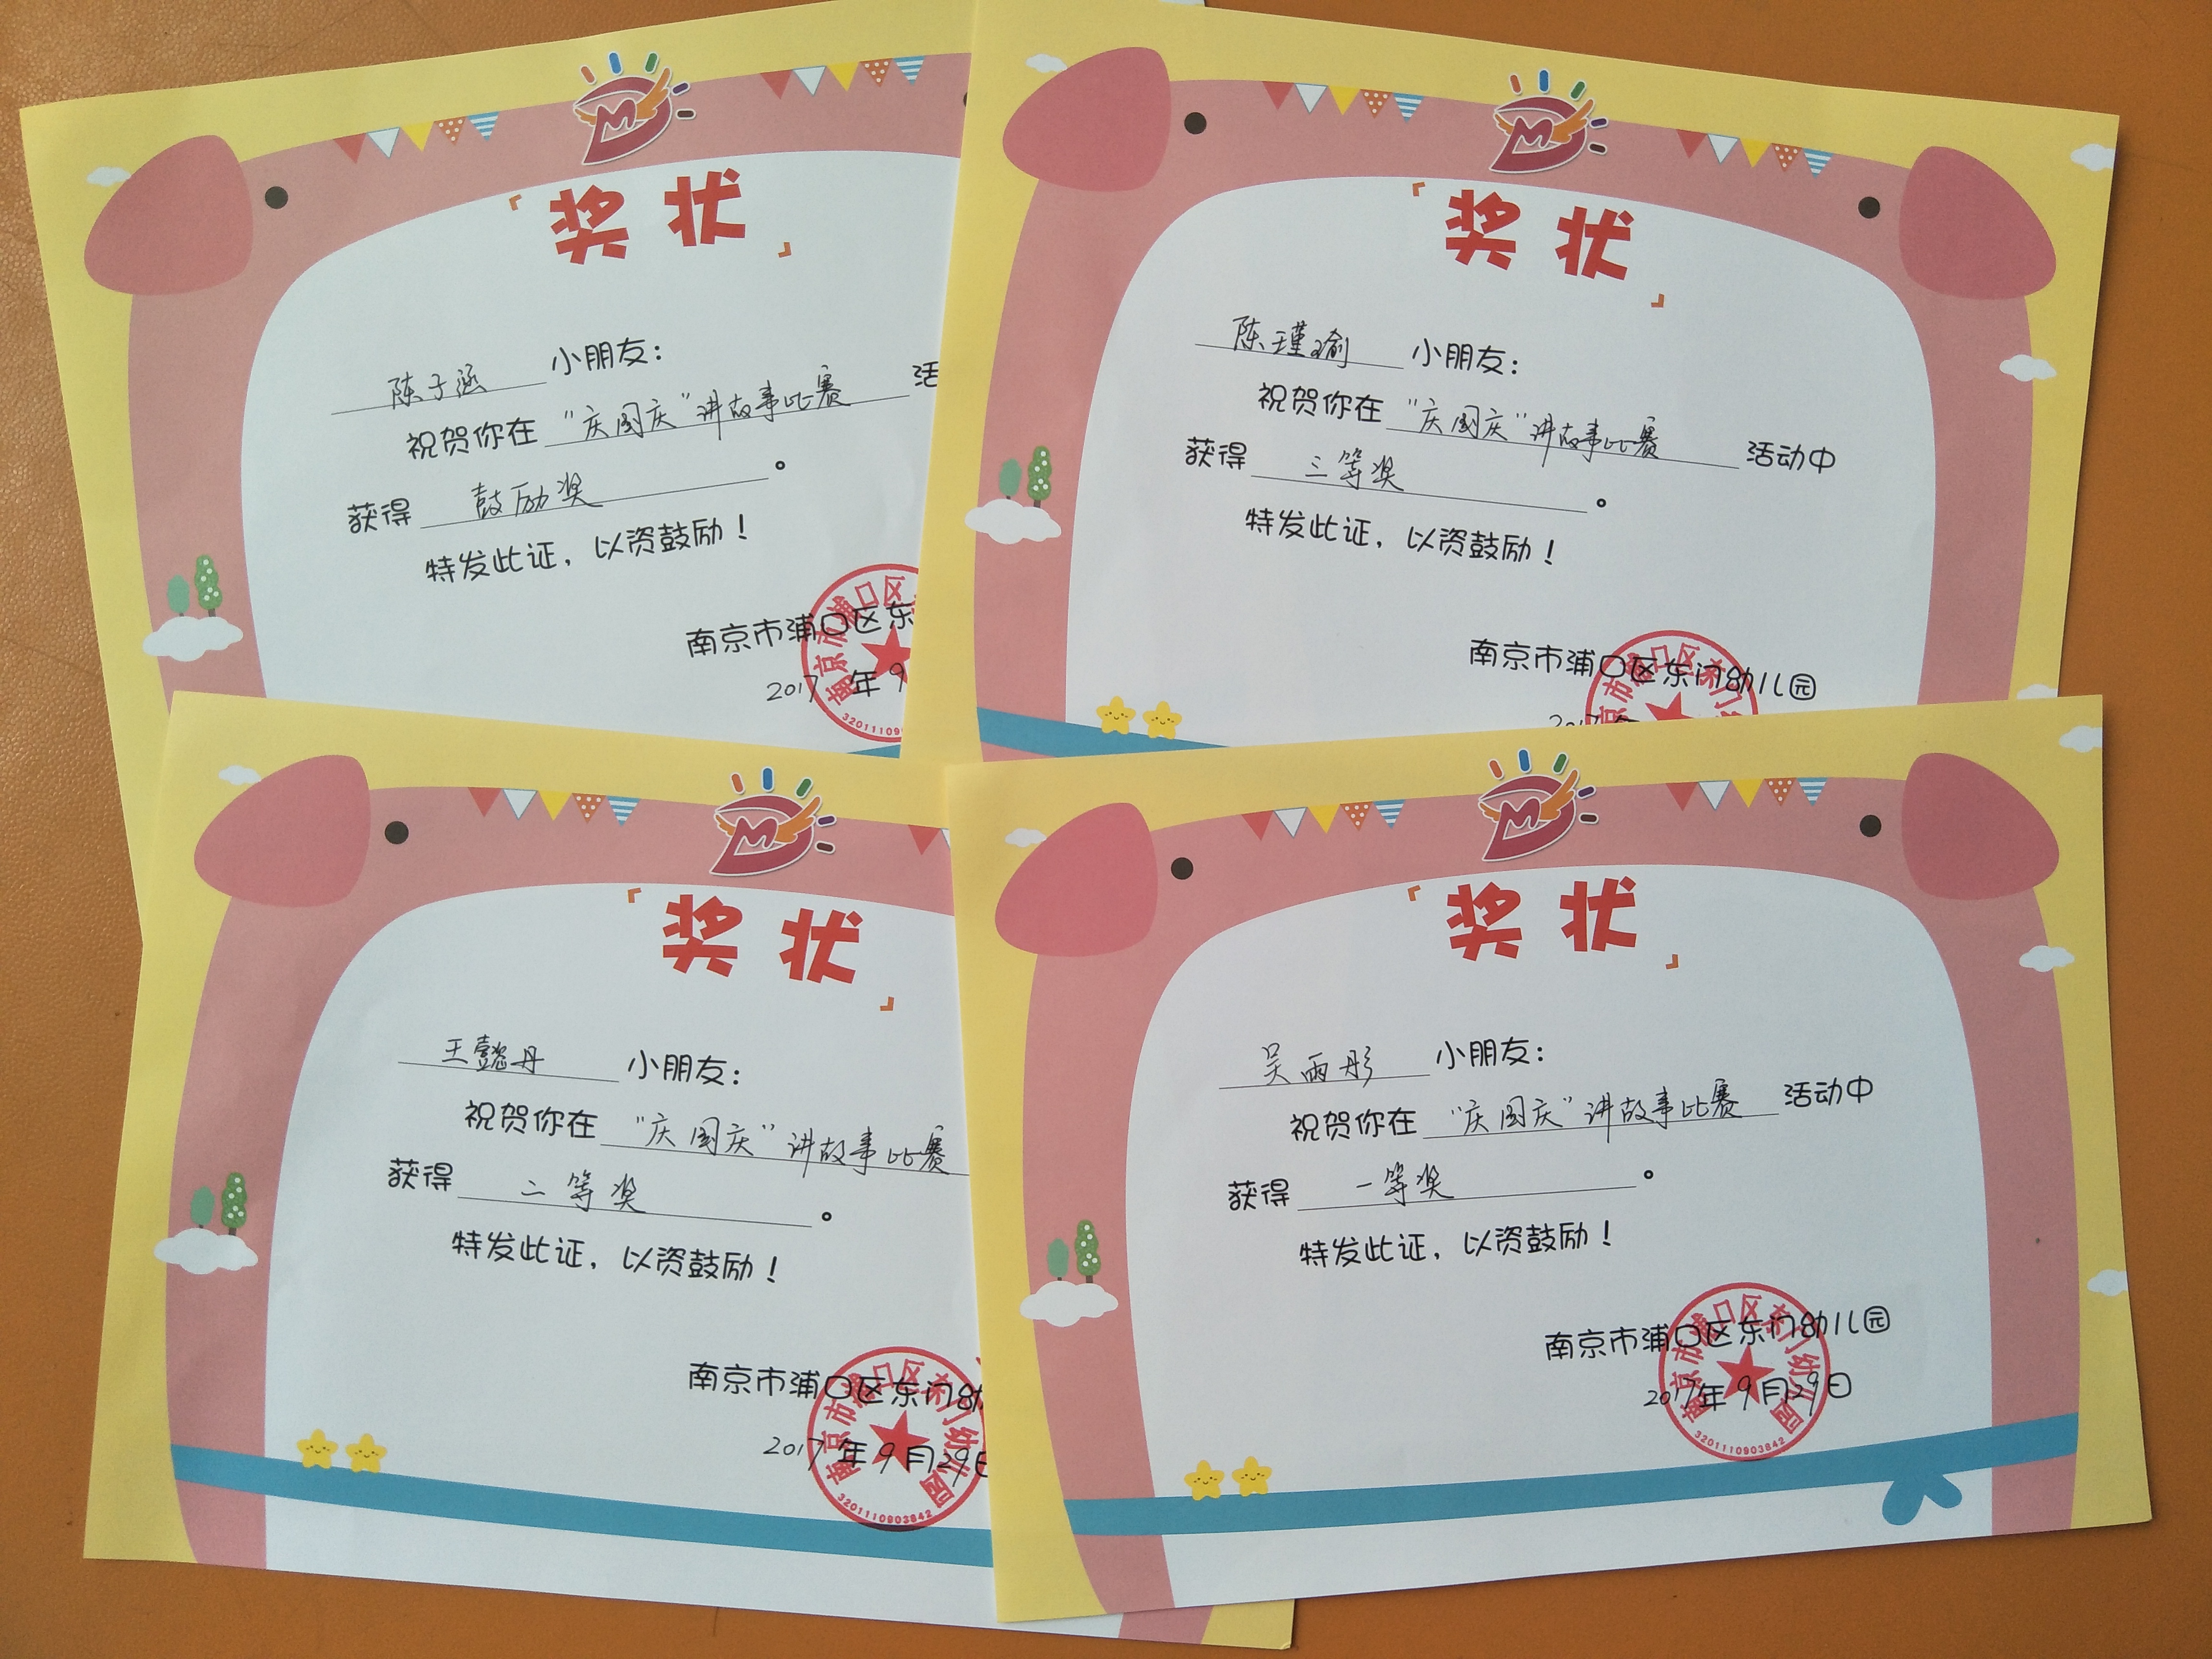 奖状
陈子涵 小朋友：
祝贺你在 “庆国庆”讲故事比赛 活
获得 鼓励奖 。
特发此证，以资鼓励！
南京市浦口区东
2017 年 9
南京市浦口区
3201110
奖状
陈瑾瑜 小朋友：
祝贺你在 “庆国庆”讲故事比赛 活动中
获得 三等奖 。
特发此证，以资鼓励！
南京市浦口区东门幼儿园
奖状
王懿丹 小朋友：
祝贺你在 “庆国庆”讲故事比赛
获得 二等奖 。
特发此证，以资鼓励！
南京市浦口区东门幼
2017 年 9 月 29 日
南京市浦口区东门幼儿园
3201110903842
奖状
吴雨彤 小朋友：
祝贺你在 “庆国庆”讲故事比赛 活动中
获得 一等奖 。
特发此证，以资鼓励！
南京市浦口区东门幼儿园
2017 年 9 月 29 日
南京市浦口区东门幼儿园
3201110903842